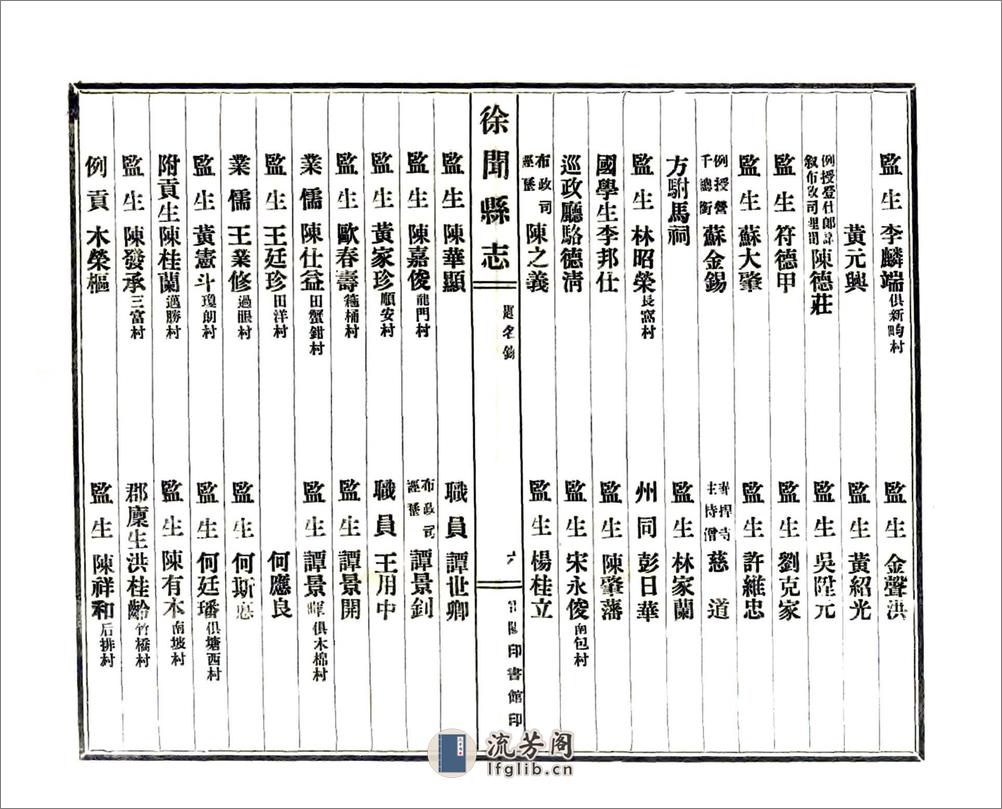 監生 李麟端 俱新畇村
監生 金聲洪
黃元興
監生 黃紹光
例授登仕郎 布政司理問 陳德莊
監生 吳陞元
監生 符德甲
監生 劉克家
監生 蘇大肇
監生 許維忠
例授營千總銜 蘇金錫
主持僧 慈道
方駙馬祠
監生 林家蘭
監生 林昭榮 長窩村
州同 彭日華
國學生 李邦仕
監生 陳肇藩
巡政廳 駱德清
監生 宋永俊 南包村
布政司 陳之義
監生 楊桂立
徐聞縣志 題名錄 六 印書館印
監生 陳華顯
職員 譚世卿
監生 陳嘉俊 龍門村
布政司 譚景釗
監生 黃家珍 順安村
職員 王用中
監生 歐春壽 箍桶村
監生 譚景開
業儒 陳仕益 田蟹鉗村
監生 譚景暉 俱木棉村
監生 王廷珍 田洋村
何應良
業儒 王業修 過眼村
監生 何斯
監生 黃憲斗 瓊朗村
監生 何廷璠 俱塘西村
附貢生 陳桂蘭 邁勝村
監生 陳有本 南坡村
監生 陳發承 三富村
郡廩生 洪桂齡 竹橋村
例貢 木榮樞
監生 陳祥和 后排村
流芳阁
lfglib.cn